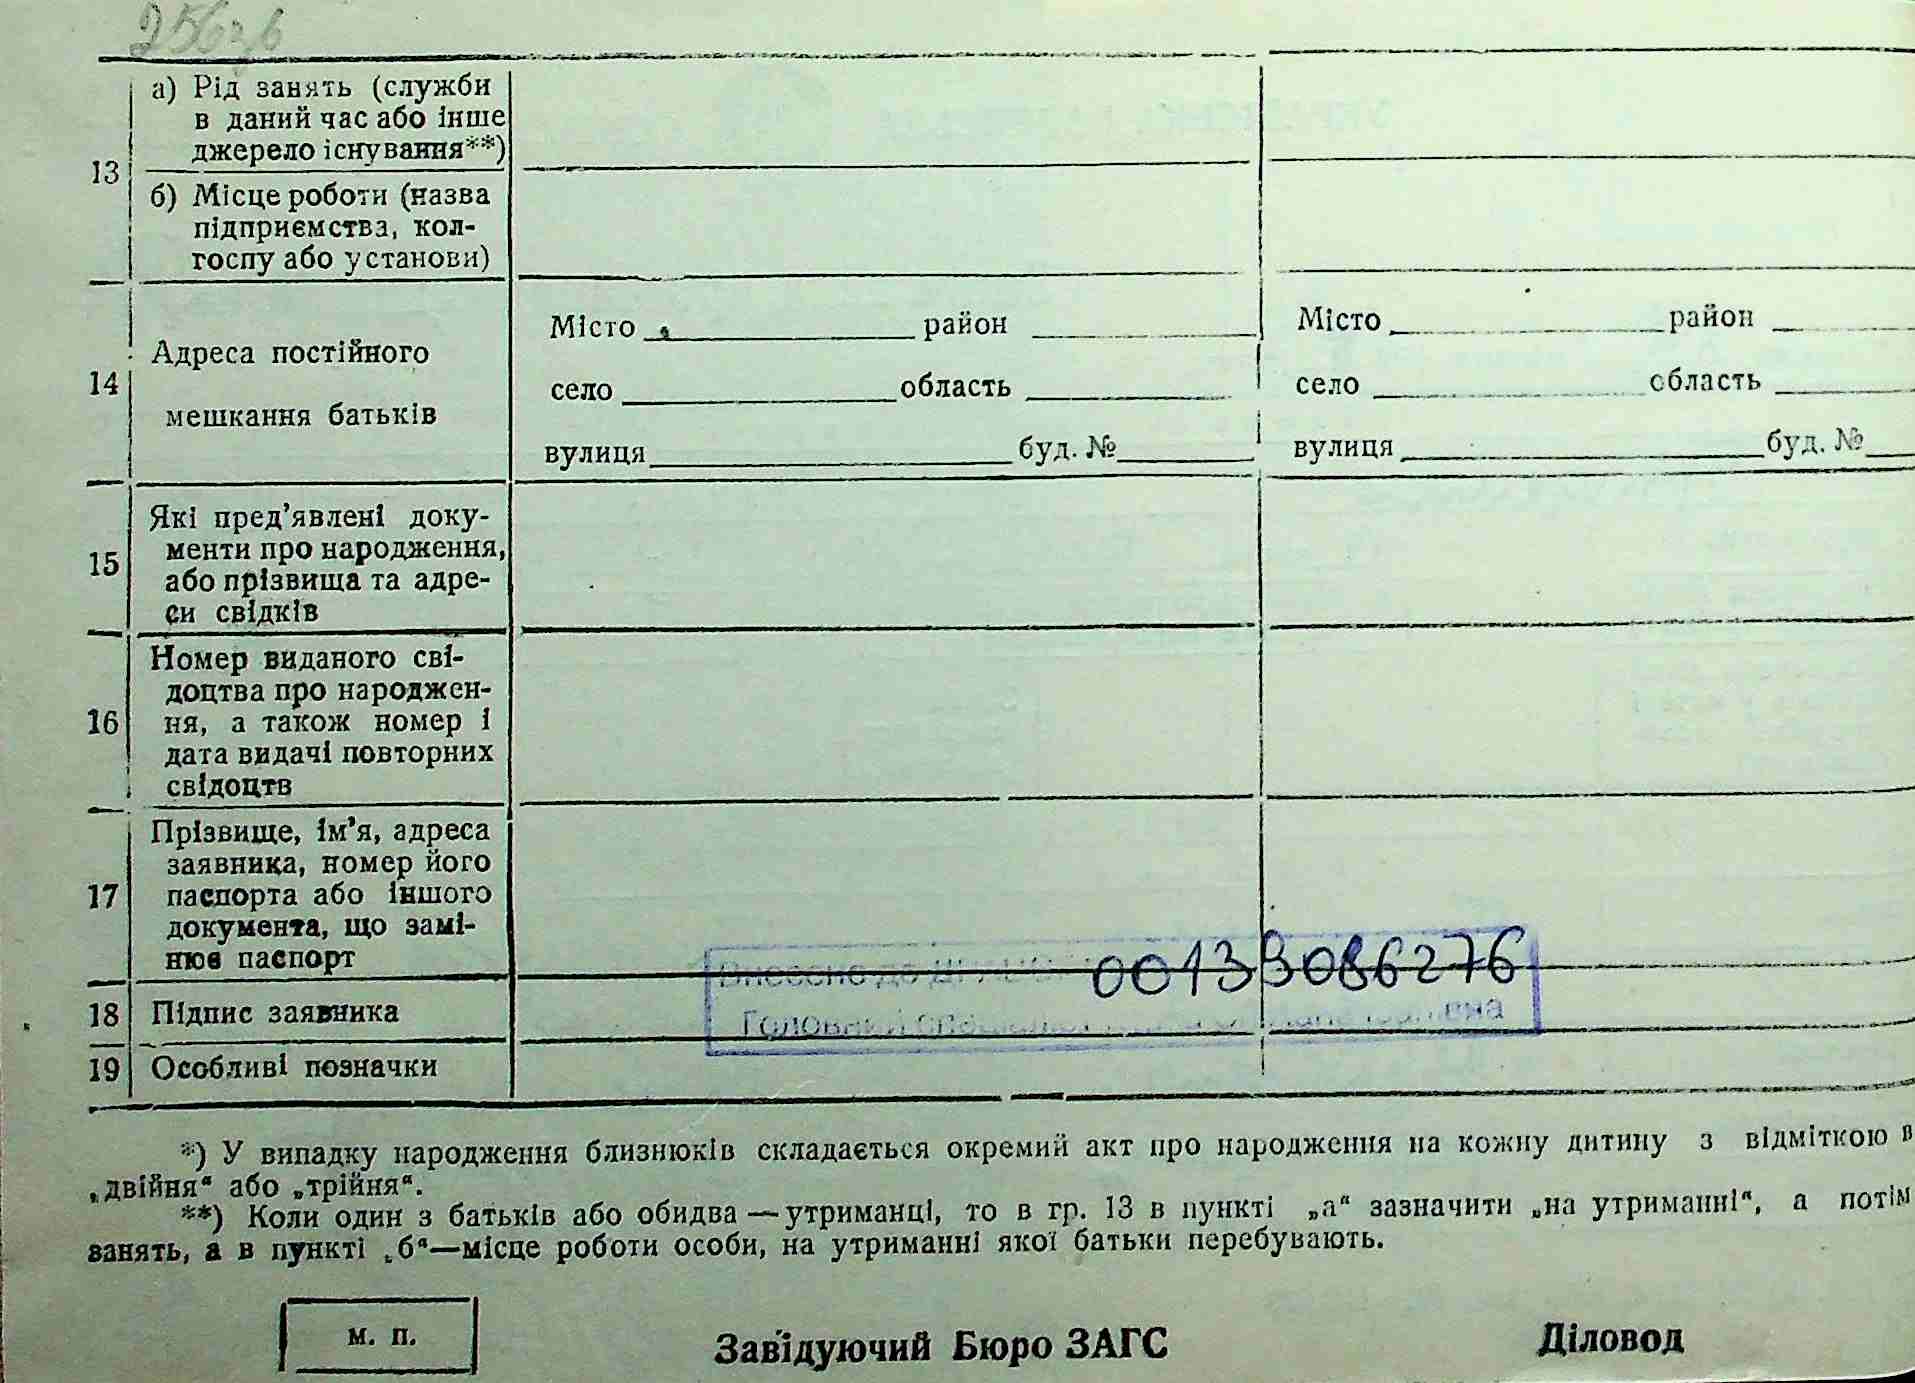 256зв
13
а) Рід занять (служби
в даний час або інше
джерело існування**)
б) Місце роботи (назва
підприємства, кол-
госпу або установи)
14
Адреса постійного
мешкання батьків
Місто район
село область
вулиця буд. №
Місто район
село область
вулиця буд. №
15
Які пред'явлені доку-
менти про народження,
або прізвища та адре-
си свідків
16
Номер виданого сві-
доцтва про народжен-
ня, а також номер і
дата видачі повторних
свідоцтв
17
Прізвище, ім'я, адреса
заявника, номер його
паспорта або іншого
документа, що замі-
нює паспорт
Внесено до 00139086276
Головний
18 Підпис заявника
19 Особливі позначки
*) У випадку народження близнюків складається окремий акт про народження на кожну дитину з відміткою в
„двійня“ або „трійня“.
**) Коли один з батьків або обидва — утриманці, то в гр. 13 в пункті „а“ зазначити „на утриманні“, а потім
занять, а в пункті „б“—місце роботи особи, на утриманні якої батьки перебувають.
м. п.
Завідуючий Бюро ЗАГС
Діловод